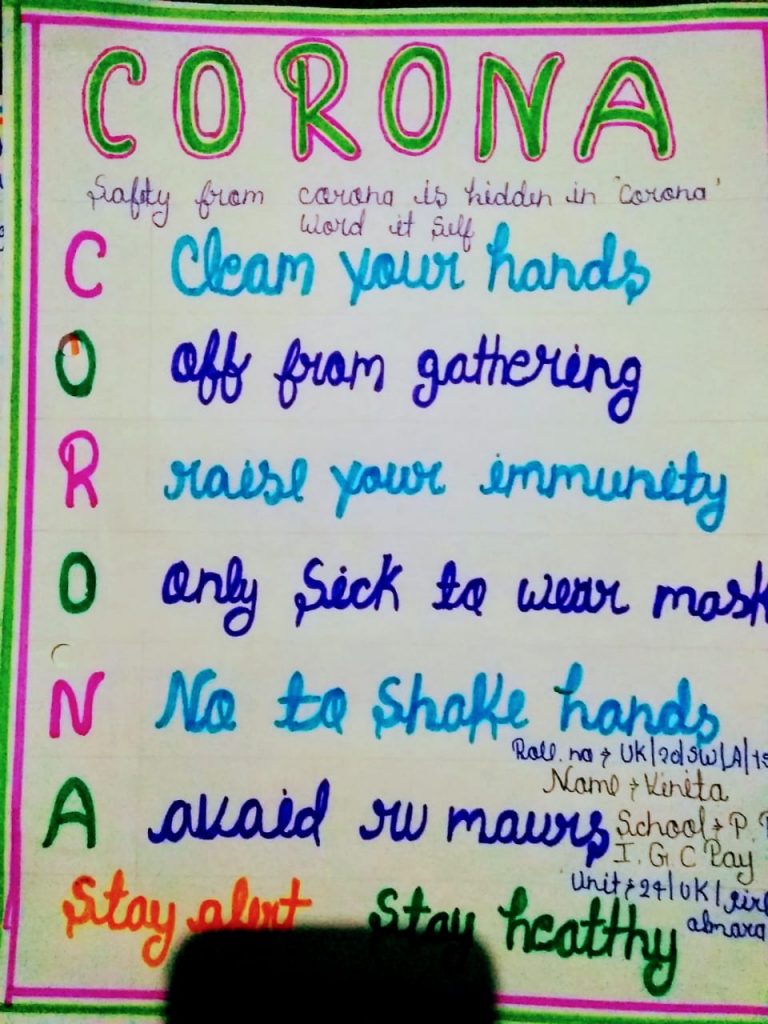 CORONA
Safity from corona is hidden in 'Corona'
Word it Self
C Cleam your hands
O Off from gathering
R raise your immunity
O Only Sick to wear mask
N No to Shake hands
Roll. no → UK/20/SW/A/
Name → Vinita
A avaid ru maurs
School → P.
I. G C Pay
Unit → 24/UK/Girl
almora
Stay alert Stay healthy